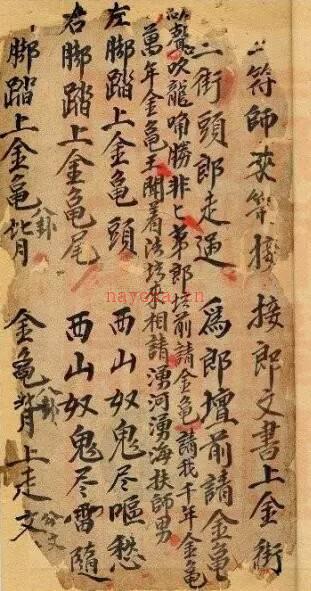 二符師来等接 接郎文書上金街
二街頭郎走過 為郎壇前請金龜
吹龍角勝非七弟郎法前請金龜請我千年金龜
萬年金龜王聞着法坛來相請湧河湧海扶師男
左脚踏上金龜頭 西山奴鬼尽嘔愁
右脚踏上金龜尾 西山奴鬼尽雷隨
脚踏上金龜背 金龜背上走文
八卦
八卦
分文